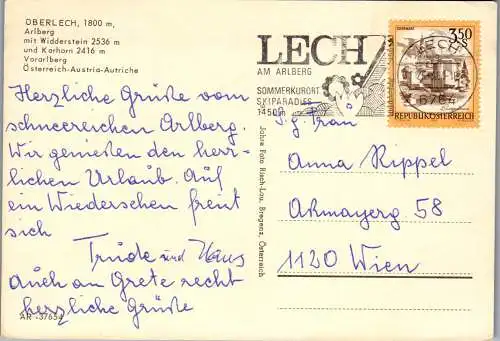 OBERLECH, 1800 m,
Arlberg
mit Widderstein 2536 m
und Karhorn 2416 m
Vorarlberg
Österreich-Austria-Autriche
Herzliche Grüße vom
schneereichen Arlberg.
Wir genießen den herr-
lichen Urlaub. Auf
ein Wiedersehen freut
sich
Trude und Hans
auch an Grete recht
herzliche Grüße
AR -37654
Jahre Foto Risch-Lau, Bregenz, Österreich
LECH
AM ARLBERG
SOMMERKURORT
SKIPARADIES
1450m
LECH
6764
3.50
S
REPUBLIK ÖSTERREICH
S.g. Frau
Anna Rippel
Aßmayerg 58
1120 Wien